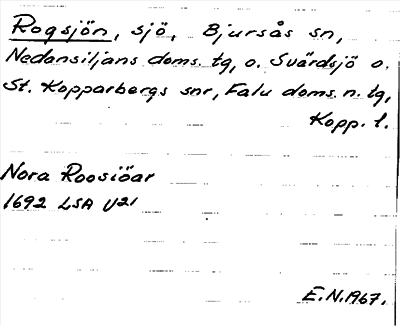 Rogsjön, sjö, Bjursås sn,
Nedansiljans doms. tg, o. Svärdsjö o.
St. Kopparbergs snr, Falu doms. n. tg,
Kopp. l.
Nora Roosiöar
1692 LSA U21
E.N.1967.